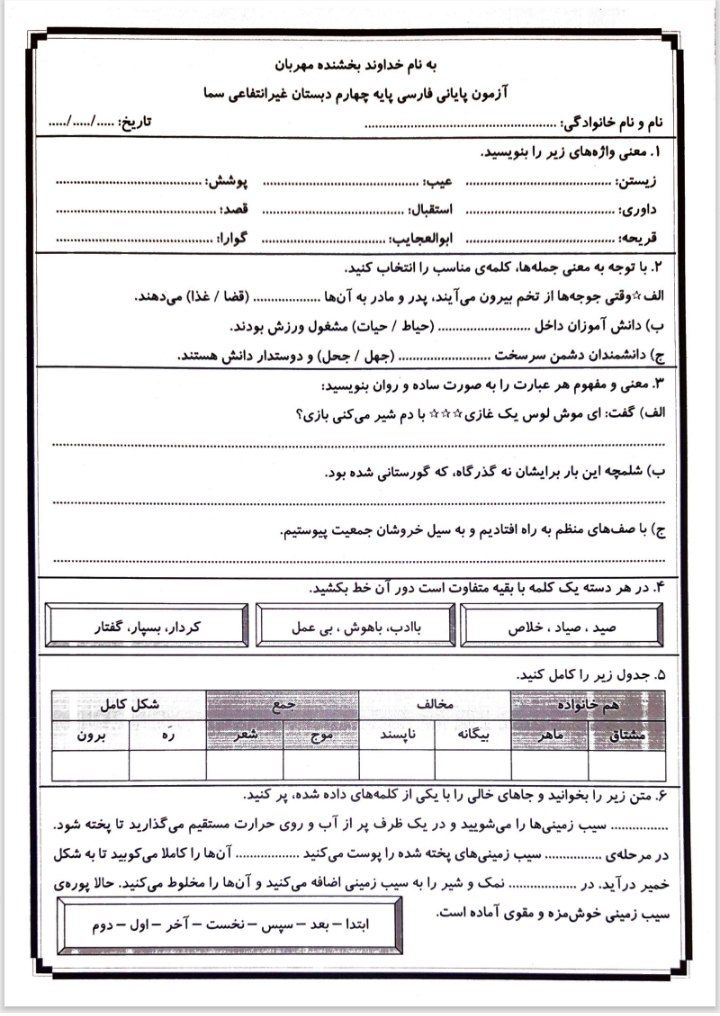 به نام خداوند بخشنده مهربان
آزمون پایانی فارسی پایه چهارم دبستان غیرانتفاعی سما
نام و نام خانوادگی: .................................................... تاریخ: ...../...../.....
۱. معنی واژه‌های زیر را بنویسید.
زیستن: ........................................ عیب: ........................................ پوشش: ........................................
داوری: ........................................ استقبال: ........................................ قصد: ........................................
قریحه: ........................................ ابوالعجایب: ................................ گوارا: ........................................
۲. با توجه به معنی جمله‌ها، کلمه‌ی مناسب را انتخاب کنید.
الف☆وقتی جوجه‌ها از تخم بیرون می‌آیند، پدر و مادر به آن‌ها .................. (قضا / غذا) می‌دهند.
ب) دانش آموزان داخل ......................... (حیاط / حیات) مشغول ورزش بودند.
ج) دانشمندان دشمن سرسخت ......................... (جهل / جحل) و دوستدار دانش هستند.
۳. معنی و مفهوم هر عبارت را به صورت ساده و روان بنویسید:
الف) گفت: ای موش لوس یک غازی☆☆☆ با دم شیر می‌کنی بازی؟
ب) شلمچه این بار برایشان نه گذرگاه، که گورستانی شده بود.
ج) با صف‌های منظم به راه افتادیم و به سیل خروشان جمعیت پیوستیم.
۴. در هر دسته یک کلمه با بقیه متفاوت است دور آن خط بکشید.
صید ، صیاد ، خلاص باادب، باهوش ، بی عمل کردار، بسپار، گفتار
۵. جدول زیر را کامل کنید.
هم خانواده مخالف جمع شکل کامل
مشتاق ماهر بیگانه ناپسند موج شعر رَه برون
۶. متن زیر را بخوانید و جاهای خالی را با یکی از کلمه‌های داده شده، پر کنید.
................ سیب زمینی‌ها را می‌شویید و در یک ظرف پر از آب و روی حرارت مستقیم می‌گذارید تا پخته شود.
در مرحله‌ی ............... سیب زمینی‌های پخته شده را پوست می‌کنید ................. آن‌ها را کاملا می‌کوبید تا به شکل
خمیر درآید. در .................. نمک و شیر را به سیب زمینی اضافه می‌کنید و آن‌ها را مخلوط می‌کنید. حالا پوره‌ی
سیب زمینی خوش‌مزه و مقوی آماده است.
ابتدا – بعد – سپس – نخست – آخر – اول – دوم